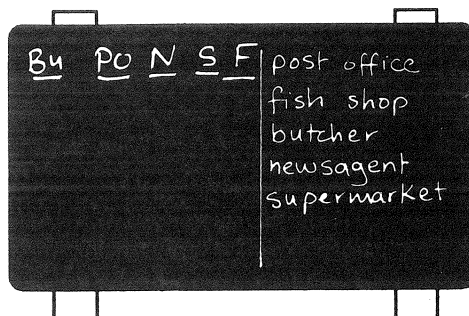 Bu PO N S F
post office
fish shop
butcher
newsagent
supermarket